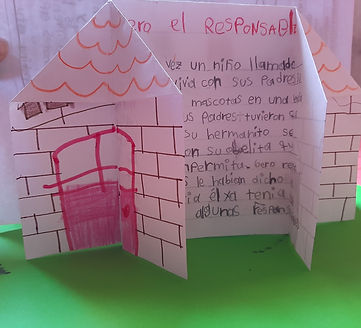 ero el RESPONSABL
vez un niño llamado
vivia con sus Padres
mascotas en una
us Padres tuvieron
su hermanito se
on su abelita
enfermita. pero
s le habian dicho
ia él xa tenia
algunas respons